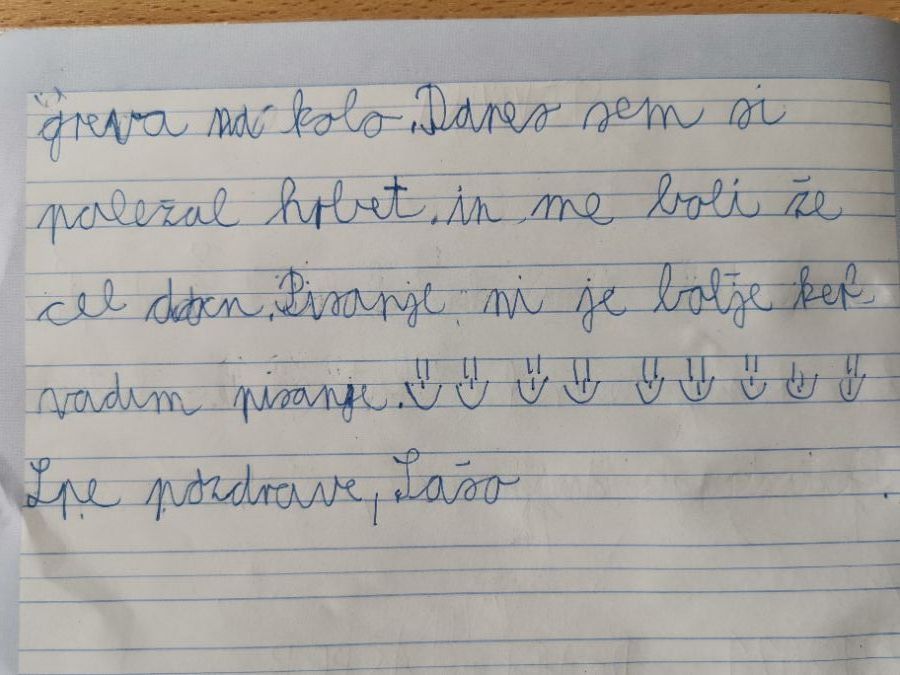 greva na kolo. Danes sem si
poležal hrbet. in me boli že
cel dan. Pisanje ni je bolje ker
vadim pisanje.
Lpe pozdrave, Sašo